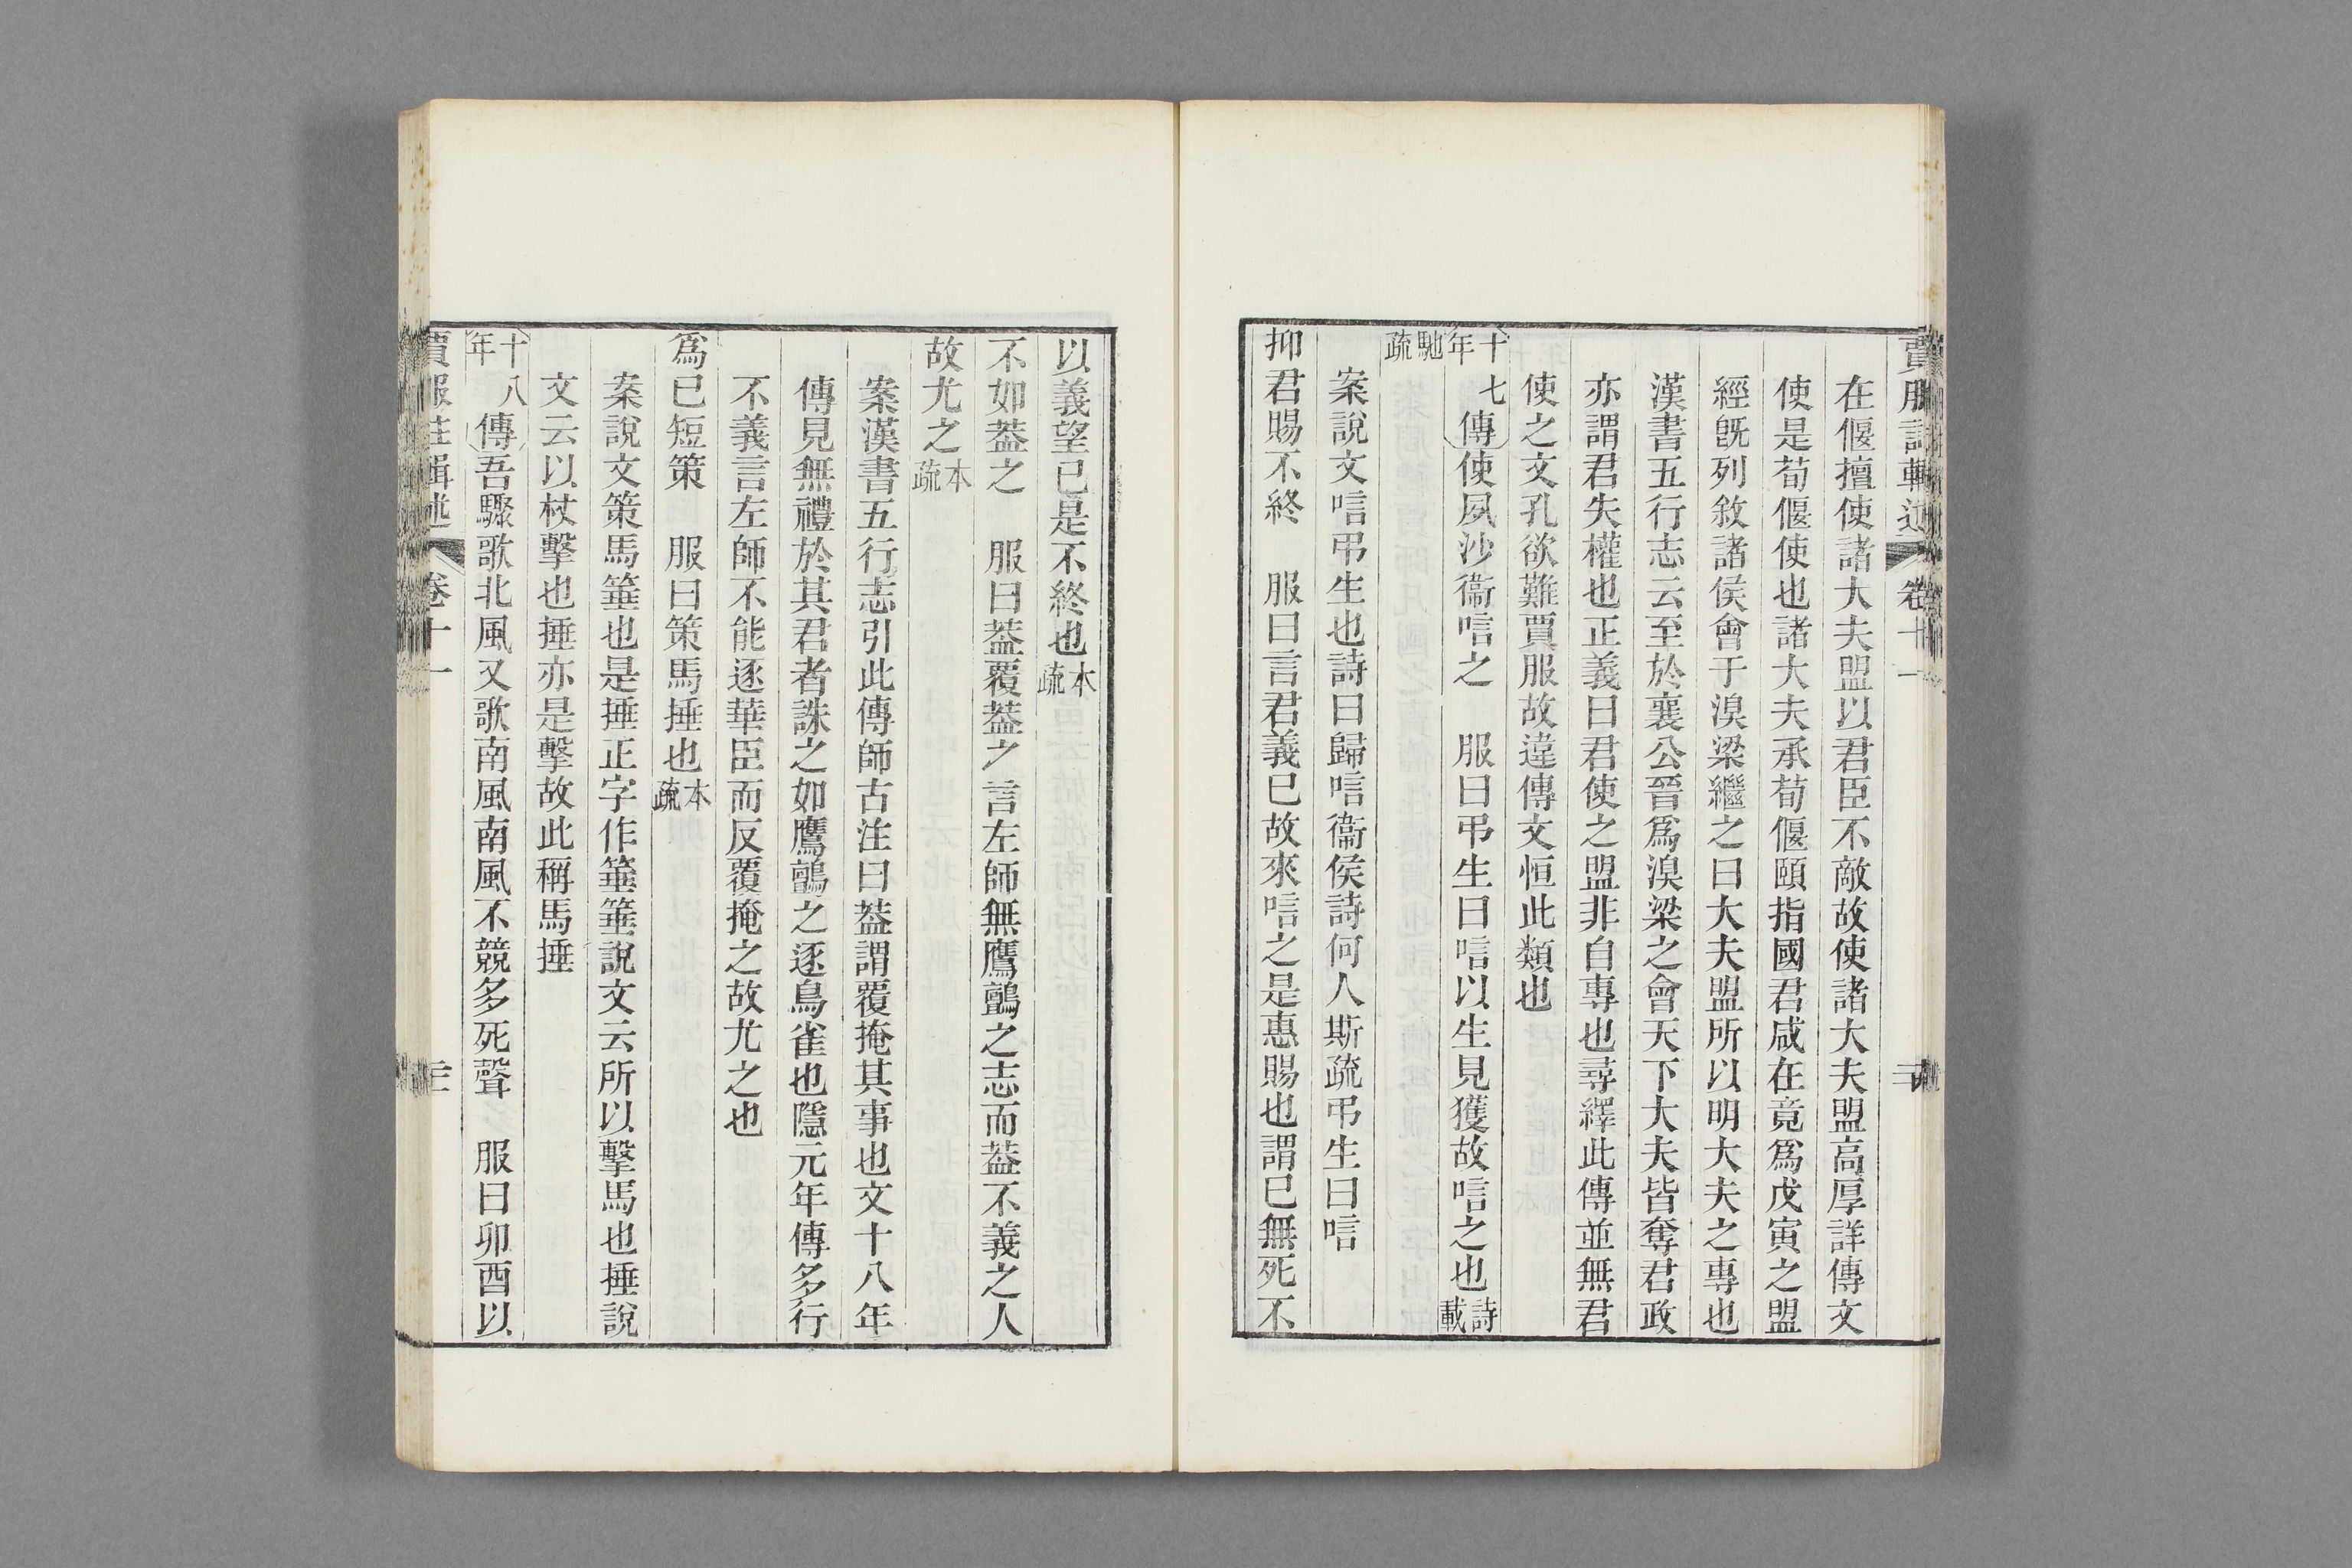 賈服註輯述 卷十一 二
在偃擅使諸大夫盟以君臣不敵故使諸大夫盟高厚詳傳文
使是荀偃使也諸大夫承荀偃頤指國君咸在竟爲戊寅之盟
經旣列敘諸侯會于湨梁繼之曰大夫盟所以明大夫之專也
漢書五行志云至於襄公晉爲湨梁之會天下大夫皆奪君政
亦謂君失權也正義曰君使之盟非自專也尋繹此傳並無君
使之文孔欲難賈服故違傳文恒此類也
十七年傳使夙沙衞唁之　服曰弔生曰唁以生見獲故唁之也詩載
馳疏
案說文唁弔生也詩曰歸唁衞侯詩何人斯疏弔生曰唁
抑君賜不終　服曰言君義已故來唁之是惠賜也謂已無死不
以義望已是不終也本疏
不如葢之　服曰葢覆葢之言左師無鷹鸇之志而葢不義之人
故尤之本疏
案漢書五行志引此傳師古注曰葢謂覆掩其事也文十八年
傳見無禮於其君者誅之如鷹鸇之逐鳥雀也隱元年傳多行
不義言左師不能逐華臣而反覆掩之故尤之也
爲已短策　服曰策馬捶也本疏
案說文策馬箠也是捶正字作箠箠說文云所以擊馬也捶說
文云以杖擊也捶亦是擊故此稱馬捶
十八年傳吾驟歌北風又歌南風南風不競多死聲　服曰卯酉以
賈服註輯述 卷十一 三